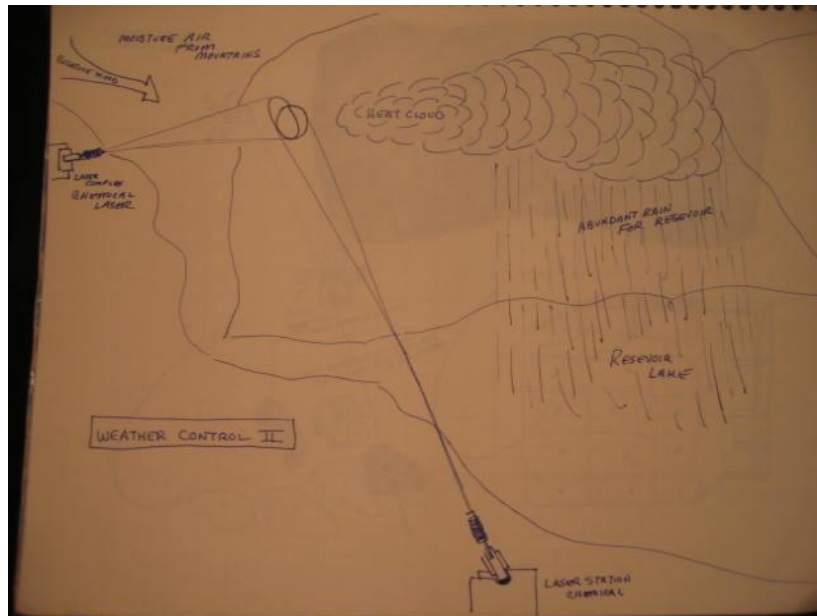 MOISTURE AIR
FROM
MOUNTAINS
WIND
CHEAT CLOUD
LASER
COMPLEX
CHEMICAL
LASER
ABUNDANT RAIN
FOR RESERVOIR
RESEVOIR
LAKE
WEATHER CONTROL II
LASER STATION
CHEMICAL